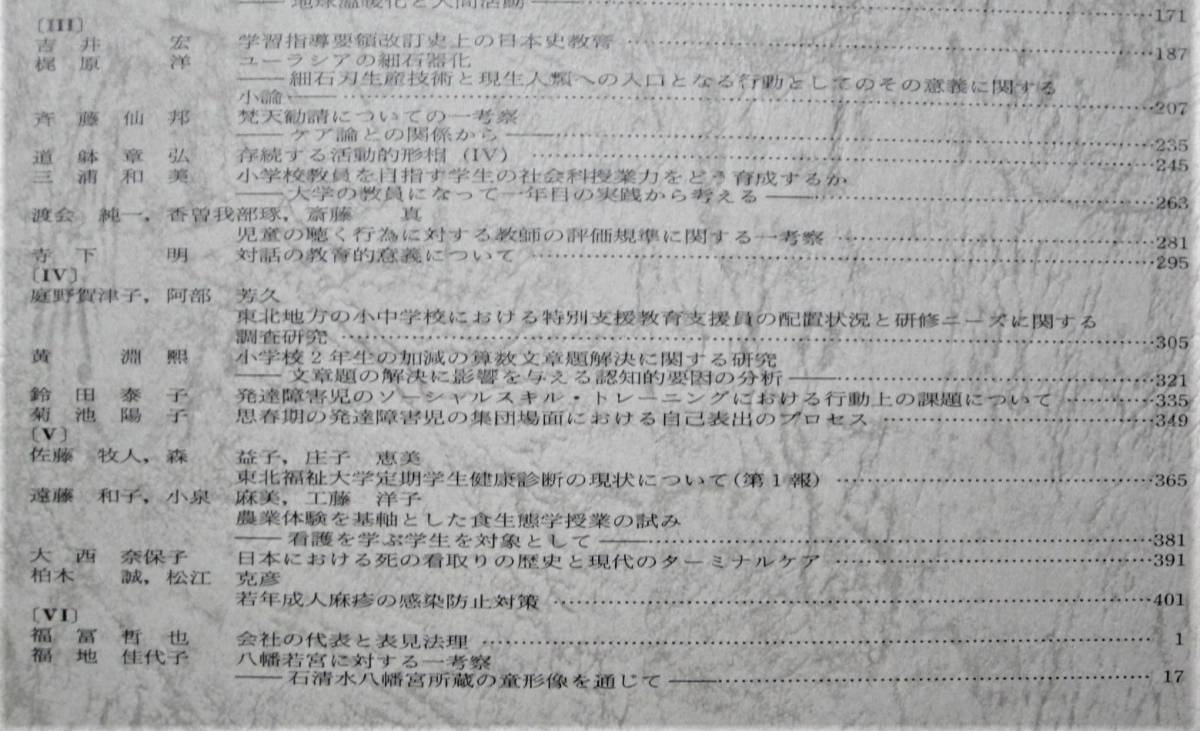 ―― 地球温暖化と人間活動 ―― ……171
〔III〕
吉井 宏 学習指導要領改訂史上の日本史教育 ……187
梶原 洋 ユーラシアの細石器化
―― 細石刃生産技術と現生人類への入口となる行動としてのその意義に関する
小論 ―― ……207
斉藤仙邦 梵天勧請についての一考察
―― ケア論との関係から ―― ……235
道躰章弘 存続する活動的形相（IV） ……245
三浦和美 小学校教員を目指す学生の社会科授業力をどう育成するか
―― 大学の教員になって一年目の実践から考える ―― ……263
渡会 純一, 香曽我部琢, 斎藤 真
児童の聴く行為に対する教師の評価規準に関する一考察 ……281
寺下 明 対話の教育的意義について ……295
〔IV〕
庭野賀津子, 阿部 芳久
東北地方の小中学校における特別支援教育支援員の配置状況と研修ニーズに関する
調査研究 ……305
黄 淵熙 小学校2年生の加減の算数文章題解決に関する研究
―― 文章題の解決に影響を与える認知的要因の分析 ―― ……321
鈴田泰子 発達障害児のソーシャルスキル・トレーニングにおける行動上の課題について ……335
菊池陽子 思春期の発達障害児の集団場面における自己表出のプロセス ……349
〔V〕
佐藤 牧人, 森 益子, 庄子 恵美
東北福祉大学定期学生健康診断の現状について(第1報) ……365
遠藤 和子, 小泉 麻美, 工藤 洋子
農業体験を基軸とした食生態学授業の試み
―― 看護を学ぶ学生を対象として ―― ……381
大西 奈保子 日本における死の看取りの歴史と現代のターミナルケア ……391
柏木 誠, 松江 克彦
若年成人麻疹の感染防止対策 ……401
〔VI〕
福冨哲也 会社の代表と表見法理 ……1
福地 佳代子 八幡若宮に対する一考察
―― 石清水八幡宮所蔵の童形像を通じて ―― ……17